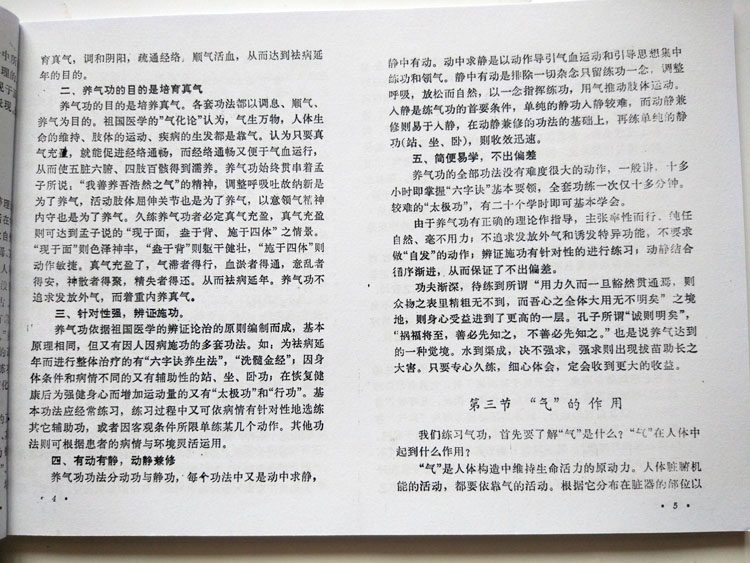 育真气，调和阴阳，疏通经络，顺气活血，从而达到祛病延
年的目的。
二、养气功的目的是培育真气
养气功的目的是培养真气。各套功法都以调息、顺气、
养气为目的。祖国医学的“气化论”认为，气生万物，人体生
命的维持、肢体的运动、疾病的生发都是靠气。认为只要真
气充盈，就能促进经络通畅，而经络通畅又便于气血运行，
从而使五脏六腑、四肢百骸得到濡养。养气功始终贯串着孟
子所说：“我善养吾浩然之气”的精神，调整呼吸吐故纳新是
为了养气，活动肢体屈伸关节也是为了养气，以意领气精神
内守也是为了养气。久练养气功者必定真气充盈，真气充盈
则可达到孟子说的“现于面，盎于背，施于四体”之情景。
“现于面”则色泽神丰，“盎于背”则躯干健壮，“施于四体”则
动作敏捷。真气充盈了，气滞者得行，血淤者得通，意乱者
得安，神散者得聚，精失者得还。从而祛病延年。养气功不
追求发放外气，而着重内养真气。
三、针对性强，辨证施功。
养气功依据祖国医学的辨证论治的原则编制而成，基本
原理相同，但又有因人因病施功的多套功法。如：为祛病延
年而进行整体治疗的有“六字诀养生法”，“洗髓金经”；因身
体条件和病情不同的又有辅助性的站、坐、卧功；在恢复健
康后为强健身心而增加运动量的又有“太极功”和“行功”。基
本功法应经常练习，练习过程中又可依病情有针对性地选练
其它辅助功，或者因客观条件所限单练某几个动作。其他功
法则可根据患者的病情与环境灵活运用。
四、有动有静，动静兼修
养气功功法分动功与静功，每个功法中又是动中求静，
· 4 ·
静中有动。动中求静是以动作导引气血运动和引导思想集中
练功和领气。静中有动是排除一切杂念只留练功一念，调整
呼吸，放松而自然，以一念指挥练功，用气推动肢体运动。
入静是练气功的首要条件，单纯的静功入静较难，而动静兼
修则易于入静，在动静兼修的功法的基础上，再练单纯的静
功(站、坐、卧)，则收效迅速。
五、简便易学，不出偏差
养气功的全部功法没有难度很大的动作，一般讲，十多
小时即掌握“六字诀”基本要领，全套功练一次仅十多分钟。
较难的“太极功”，有二十个学时即可基本学会。
由于养气功有正确的理论作指导，主张率性而行、纯任
自然、毫不用力；不追求发放外气和诱发特异功能，不要求
做“自发”的动作；辨证施功有针对性的进行练习；动静结合
循序渐进，从而保证了不出偏差。
功夫渐深，待练到所谓“用力久而一旦豁然贯通焉，则
众物之表里精粗无不到，而吾心之全体大用无不明矣”之境
地，则身心受益进到了更高的一层。孔子所谓“诚则明矣”，
“祸福将至，善必先知之，不善必先知之。”也是说养气达到
的一种觉境。水到渠成，决不强求，强求则出现拔苗助长之
大害。只要专心久练，细心体会，定会收到更大的收益。
第三节 “气”的作用
我们练习气功，首先要了解“气”是什么？“气”在人体中
起到什么作用？
“气”是人体构造中维持生命活力的原动力。人体脏腑机
能的活动，都要依靠气的活动。根据它分布在脏器的部位以
· 5 ·